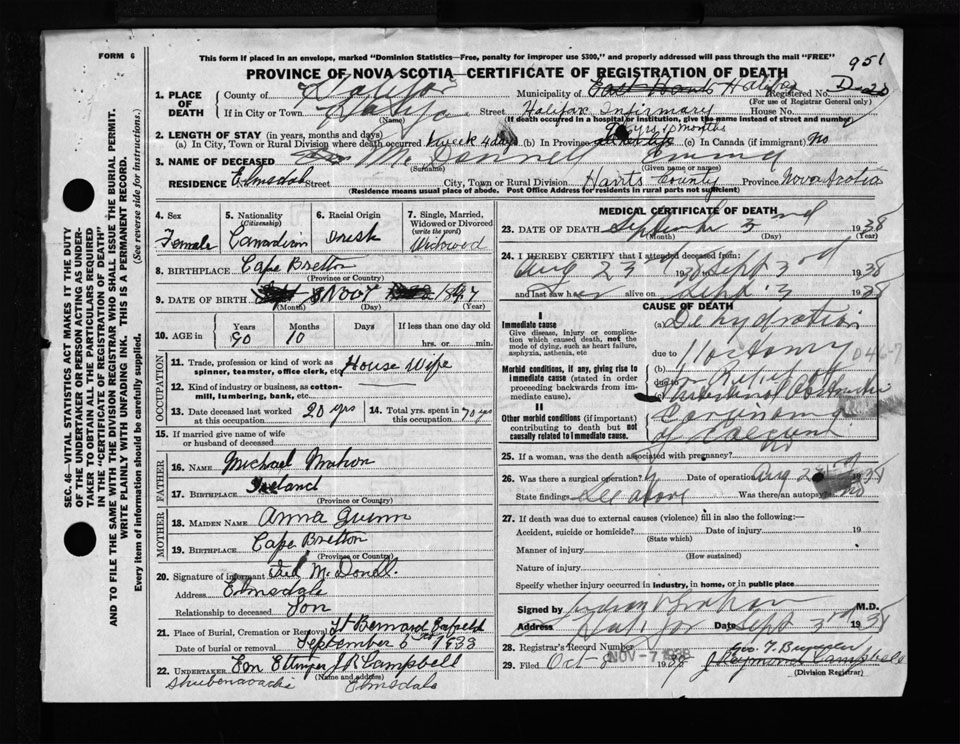 FORM 6
This form if placed in an envelope, marked "Dominion Statistics—Free, penalty for improper use $300," and properly addressed will pass through the mail "FREE"
951
PROVINCE OF NOVA SCOTIA—CERTIFICATE OF REGISTRATION OF DEATH
1. PLACE OF DEATH County of Municipality of East Hants Halifax Registered No. D-20
(For use of Registrar General only)
If in City or Town (Name) Street Halifax Infirmary House No.
(If death occurred in a hospital or institution, give the name instead of street and number)
2. LENGTH OF STAY (in years, months and days)
(a) In City, Town or Rural Division where death occurred 1 week 4 days (b) In Province 90 yrs 10 months (c) In Canada (if immigrant) no
3. NAME OF DECEASED McDonnell Emma
(Surname) (Given name or names)
RESIDENCE Elmsdale Street City, Town or Rural Division Hants County Province Nova Scotia
(Residence means usual place of abode. Post Office Address for residents in rural parts not sufficient)
4. Sex Female
5. Nationality (Citizenship) Canadian
6. Racial Origin Irish
7. Single, Married, Widowed or Divorced (write the word) Widowed
8. BIRTHPLACE Cape Bretton
(Province or Country)
9. DATE OF BIRTH Nov 1847
(Month) (Day) (Year)
10. AGE in Years 90 Months 10 Days If less than one day old hrs. or min.
OCCUPATION
11. Trade, profession or kind of work as spinner, teamster, office clerk, etc. House Wife
12. Kind of industry or business, as cotton-mill, lumbering, bank, etc.
13. Date deceased last worked at this occupation 20 yrs
14. Total yrs. spent in this occupation 70 yrs
15. If married give name of wife or husband of deceased
FATHER
16. NAME Michael Mahon
17. BIRTHPLACE Ireland
(Province or Country)
MOTHER
18. MAIDEN NAME Anna Quinn
19. BIRTHPLACE Cape Bretton
(Province or Country)
20. Signature of informant McDonell.
Address Elmsdale
Relationship to deceased Son
21. Place of Burial, Cremation or Removal St Bernard Enfield
Date of burial or removal September 1933
22. UNDERTAKER Ettinger J R Campbell
(Name and address)
Shubenacadie Elmsdale
MEDICAL CERTIFICATE OF DEATH
23. DATE OF DEATH September 3 1938
(Month) (Day) (Year)
24. I HEREBY CERTIFY that I attended deceased from:
Aug 23rd 1938 to Sept 3rd 1938
and last saw her alive on Sept 3 1938
CAUSE OF DEATH
I
Immediate cause
Give disease, injury or complication which caused death, not the mode of dying, such as heart failure, asphyxia, asthenia, etc
(a) Dehydration
due to
(b)
046-7
Morbid conditions, if any, giving rise to immediate cause (stated in order proceeding backwards from immediate cause).
due to
(c) Intestinal Obstruction
II
Other morbid conditions (if important) contributing to death but not causally related to immediate cause.
Carcinoma of Caecum
25. If a woman, was the death associated with pregnancy? no
26. Was there a surgical operation? Date of operation Aug 1938
State finding See above Was there an autopsy? no
27. If death was due to external causes (violence) fill in also the following:—
Accident, suicide or homicide? Date of injury 19
(State which)
Manner of injury
(How sustained)
Nature of injury
Specify whether injury occurred in industry, in home, or in public place
Signed by M.D.
Address Halifax Date Sept 3rd 1938
28. Registrar's Record Number
29. Filed Oct 1938 NOV -7 1938 J Raymond Campbell
(Division Registrar)
SEC. 46—VITAL STATISTICS ACT MAKES IT THE DUTY
OF THE UNDERTAKER OR PERSON ACTING AS UNDERTAKER
TO OBTAIN ALL THE PARTICULARS REQUIRED
IN THE "CERTIFICATE OF REGISTRATION OF DEATH"
AND TO FILE THE SAME WITH THE DIVISION REGISTRAR WHO SHALL ISSUE THE BURIAL PERMIT.
WRITE PLAINLY WITH UNFADING INK. THIS IS A PERMANENT RECORD.
Every item of information should be carefully supplied. (See reverse side for instructions.)